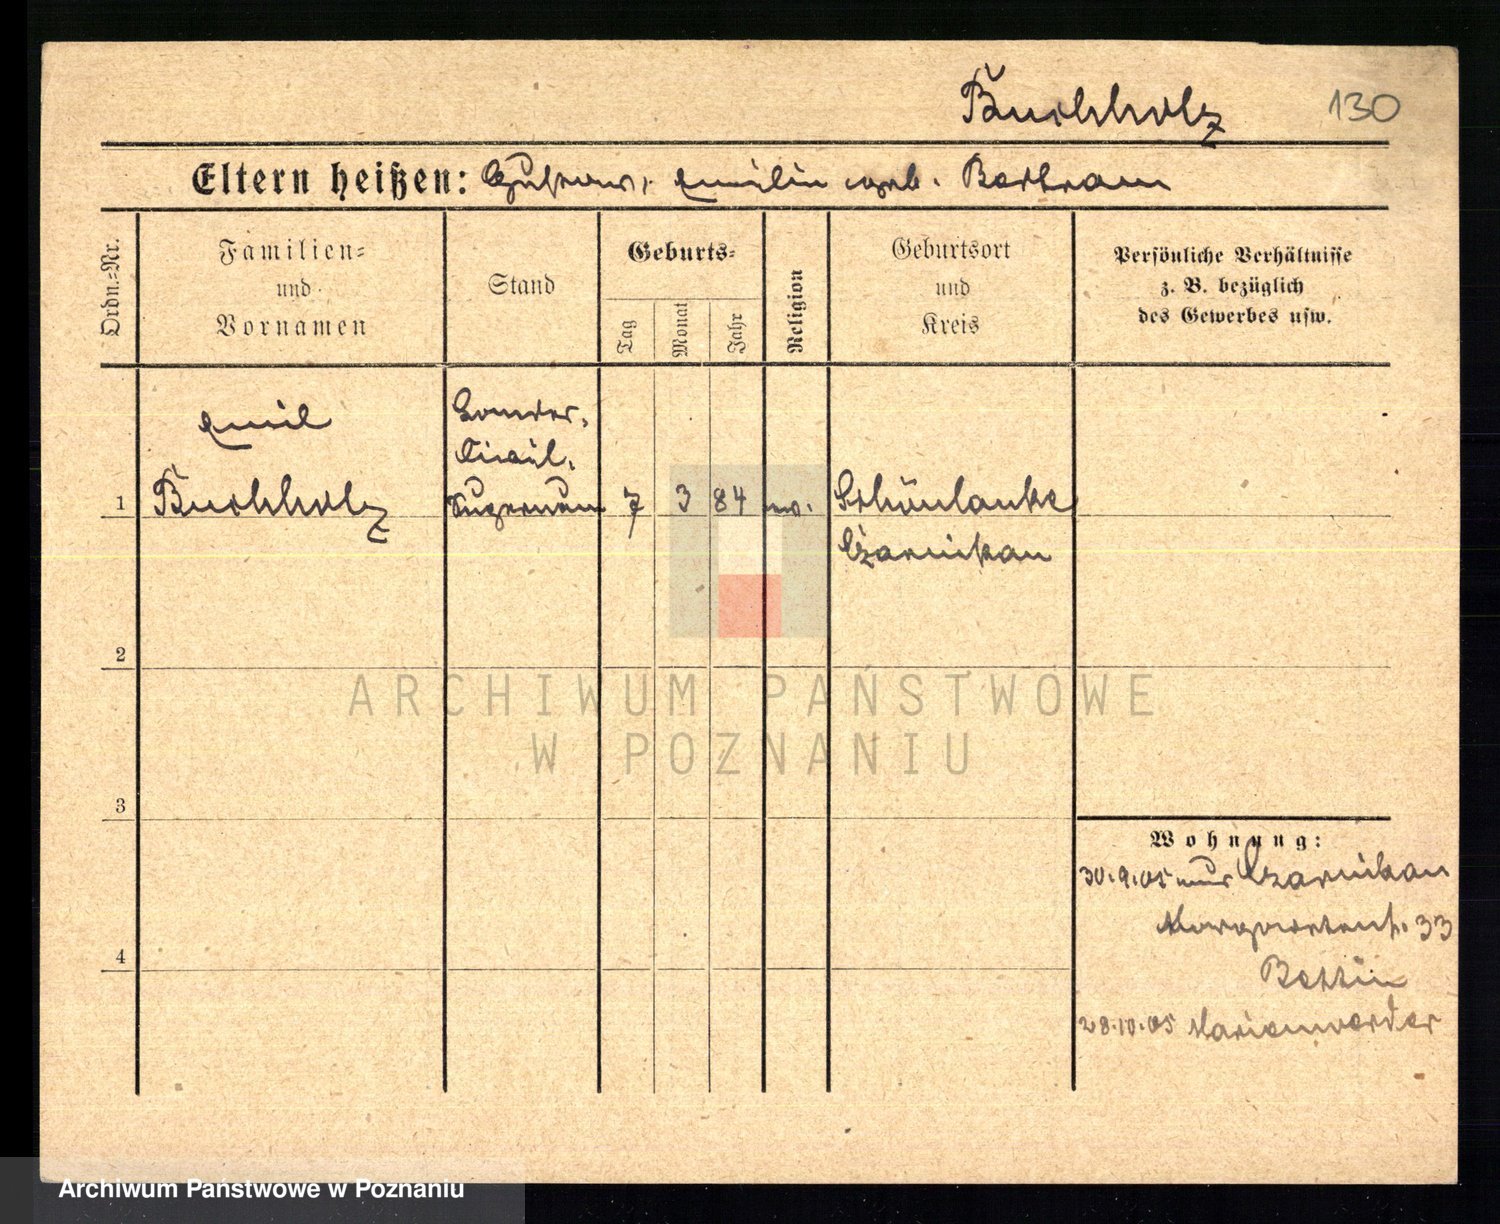 Buchholz
130
Eltern heißen: Gustav, Emilie geb. Bertram
Ordn.-Nr.
Familien-
und
Vornamen
Stand
Geburts-
Tag
Monat
Jahr
Religion
Geburtsort
und
Kreis
Persönliche Verhältnisse
z. B. bezüglich
des Gewerbes usw.
Emil
Civil.
1 Buchholz
Supernum 7 3 84 ev. Schönlanke
Czarnikau
2
3
4
Wohnung:
30.9.05 Czarnikau
33
28.10.05 Marienwerder
ARCHIWUM PAŃSTWOWE
W POZNANIU
Archiwum Państwowe w Poznaniu